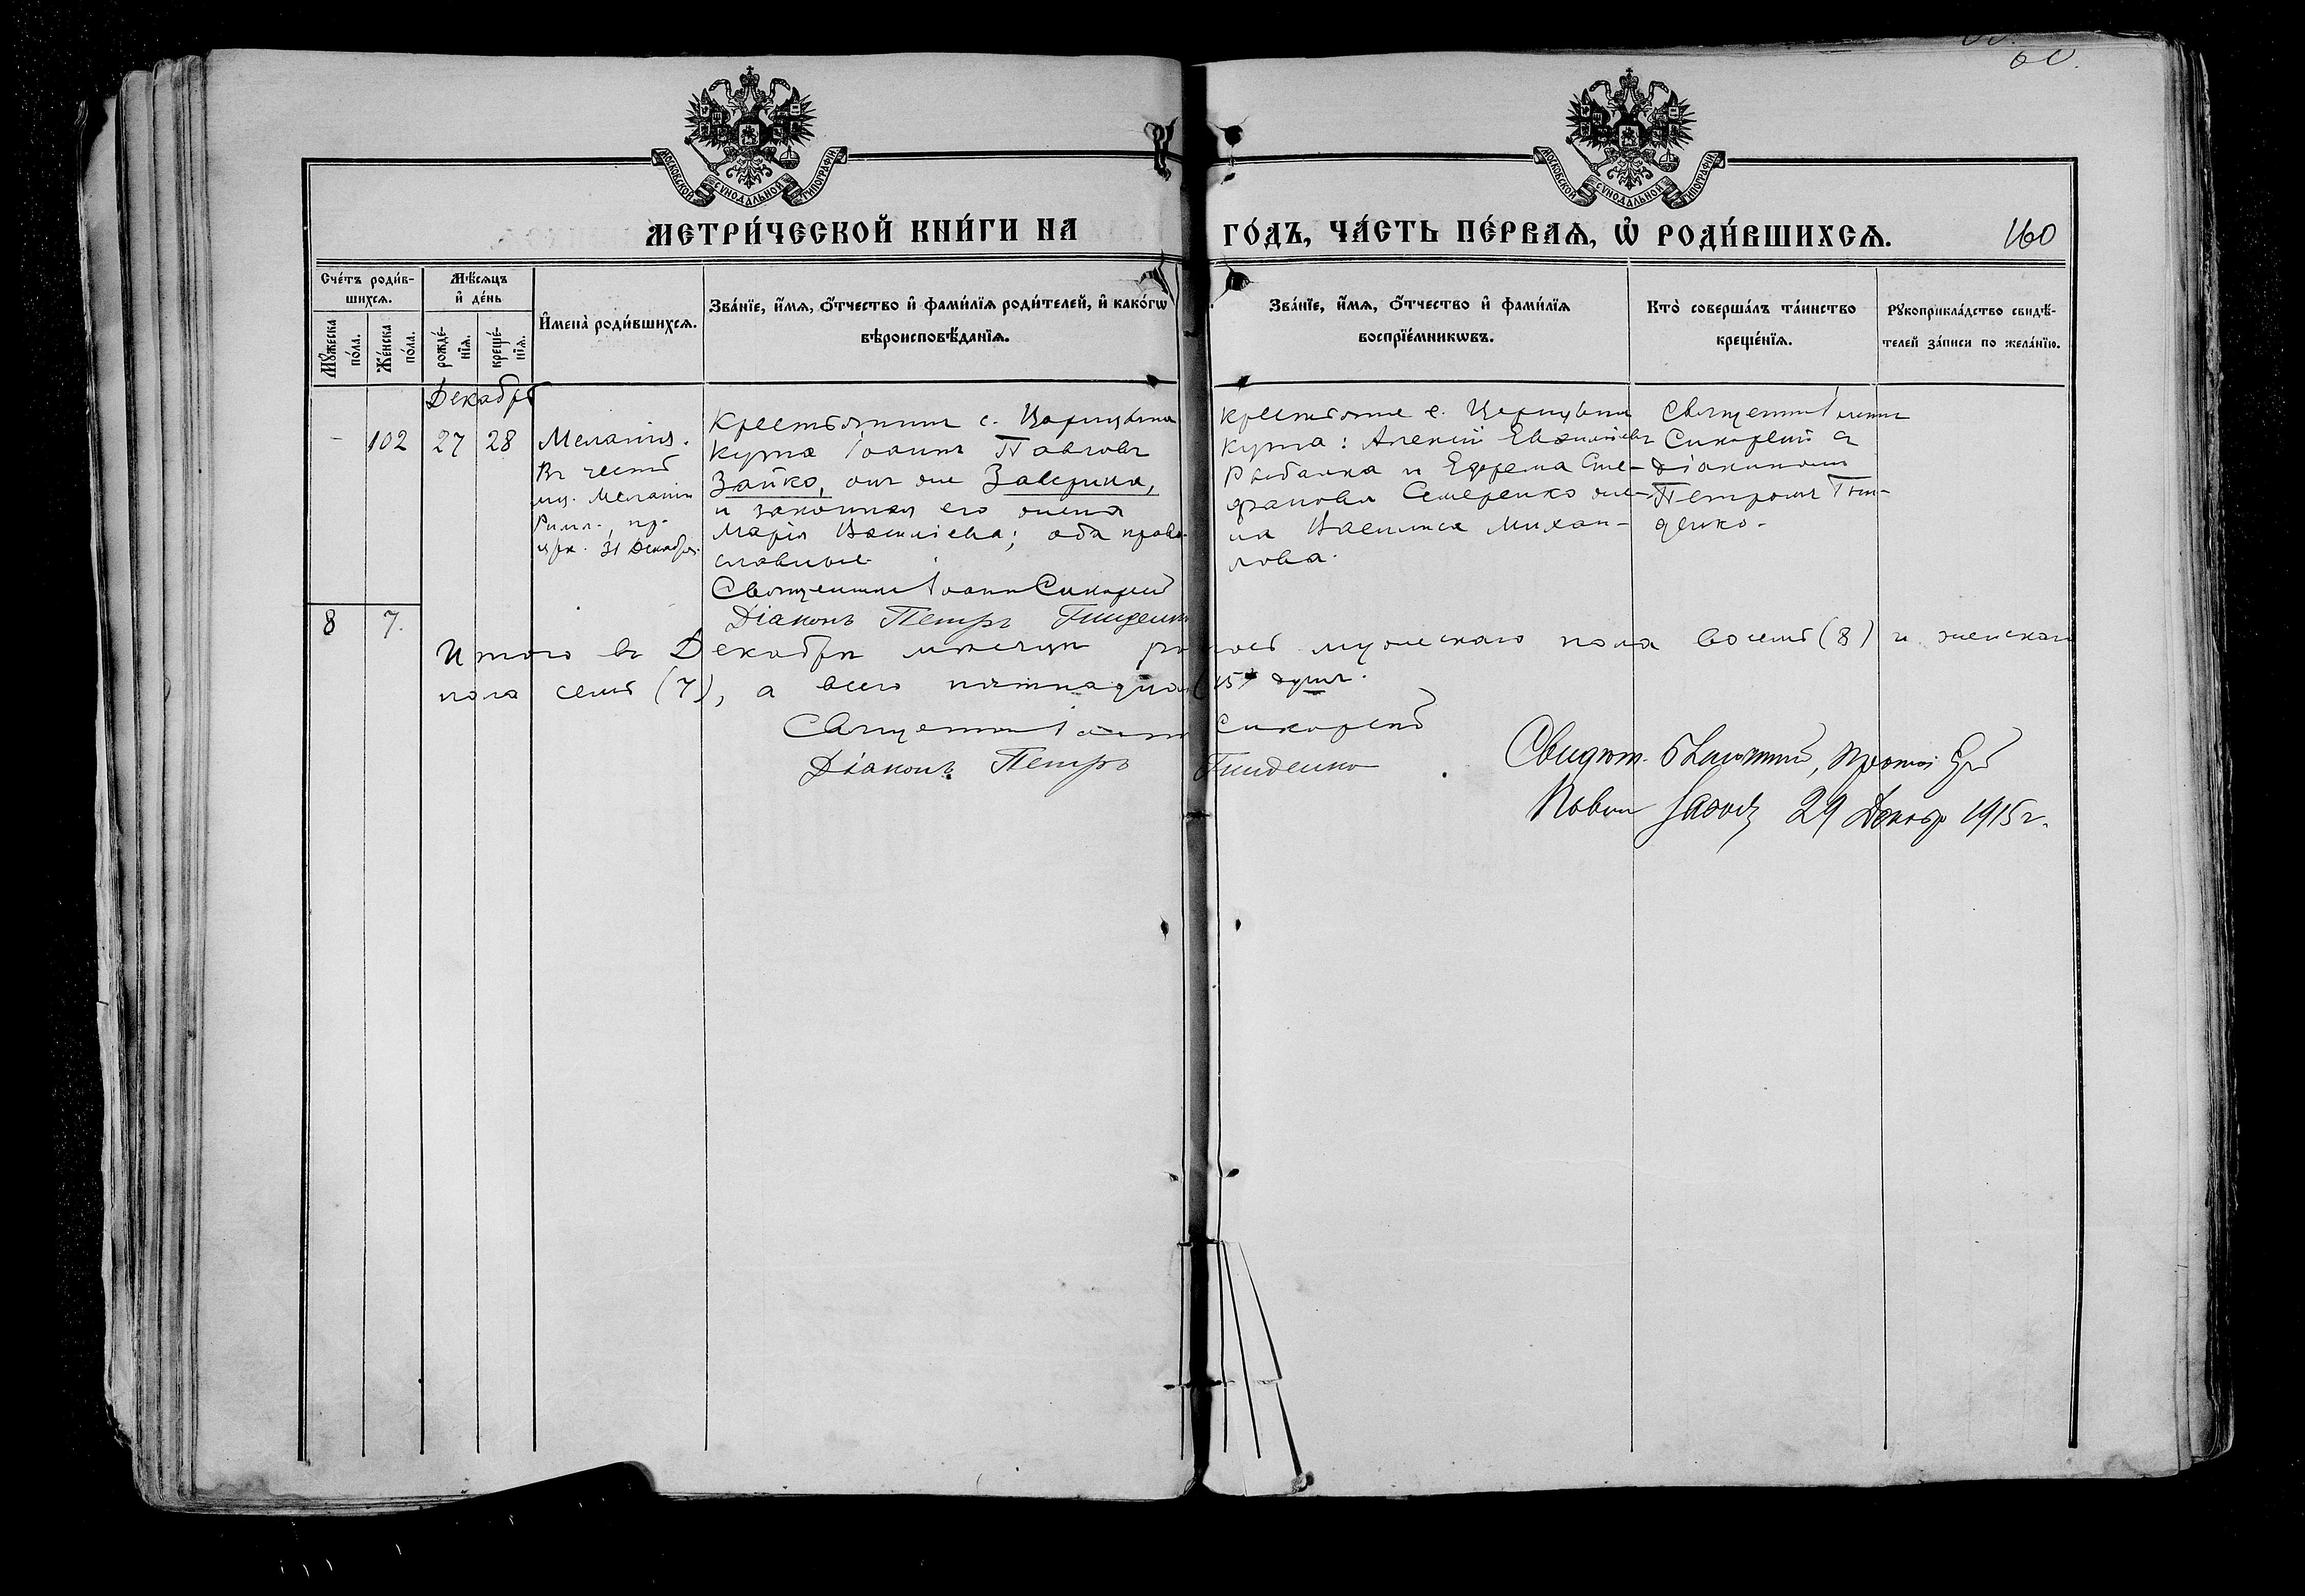 60.
МОСКОВСКОЙ СѴНОДАЛЬНОЙ ТИПОГРАФІИ
МОСКОВСКОЙ СѴНОДАЛЬНОЙ ТИПОГРАФІИ
МЕТРИ́ЧЕСКОЙ КНИ́ГИ НА
ГО́ДЪ, ЧА́СТЬ ПЕ́РВАѦ, Ѡ҆ РОДИ́ВШИХСѦ.
160
Сче́тъ роди́в-
шихсѧ.
Мꙋ́жеска
по́ла.
Же́нска
по́ла.
Мѣ́сѧцъ
и҆ де́нь
рожде́-
нїѧ.
креще́-
нїѧ.
И҆мена̀ роди́вшихсѧ.
Зва́нїе, и҆́мѧ, ѻ҆́тчество и҆ фами́лїѧ роди́телей, и҆ како́гѡ
вѣроисповѣ́данїѧ.
Зва́нїе, и҆́мѧ, ѻ҆́тчество и҆ фами́лїѧ
воспрїе́мникѡвъ.
Кто̀ соверша́лъ та́инство
креще́нїѧ.
Рꙋкоприкла́дство свидѣ́-
телей за́писи по жела́нїю.
Декабрь
- 102 27 28
Меланія.
Въ честь
мц. Меланіи
Римл., пр.
црк. 31 Декабря.
Крестьянинъ с. Царицына
Кута Іоаннъ Павловъ
Зайко, онъ же Заверика,
и законная его жена
Марія Василіева; оба право-
славные.
Священникъ Іоаннъ Сикорскій
Діаконъ Петръ Гниденко
Крестьяне с. Царицына
Кута: Алексій
Рыбалка и Ефрема Сте-
фанова Семеренко же-
на Василиса Михаи-
лова.
Священникъ Іоаннъ
Сикорскій съ
діакономъ
Петромъ Гни-
денко.
8 7.
Итого въ Декабрѣ мѣсяцѣ мужескаго пола восемь (8) и женскаго
пола семь (7), а всего пятнадцать 15 душъ.
Священникъ Іоаннъ Сикорскій
Діаконъ Петръ Гниденко
Свидѣт.
29 Декабр 1915 г.